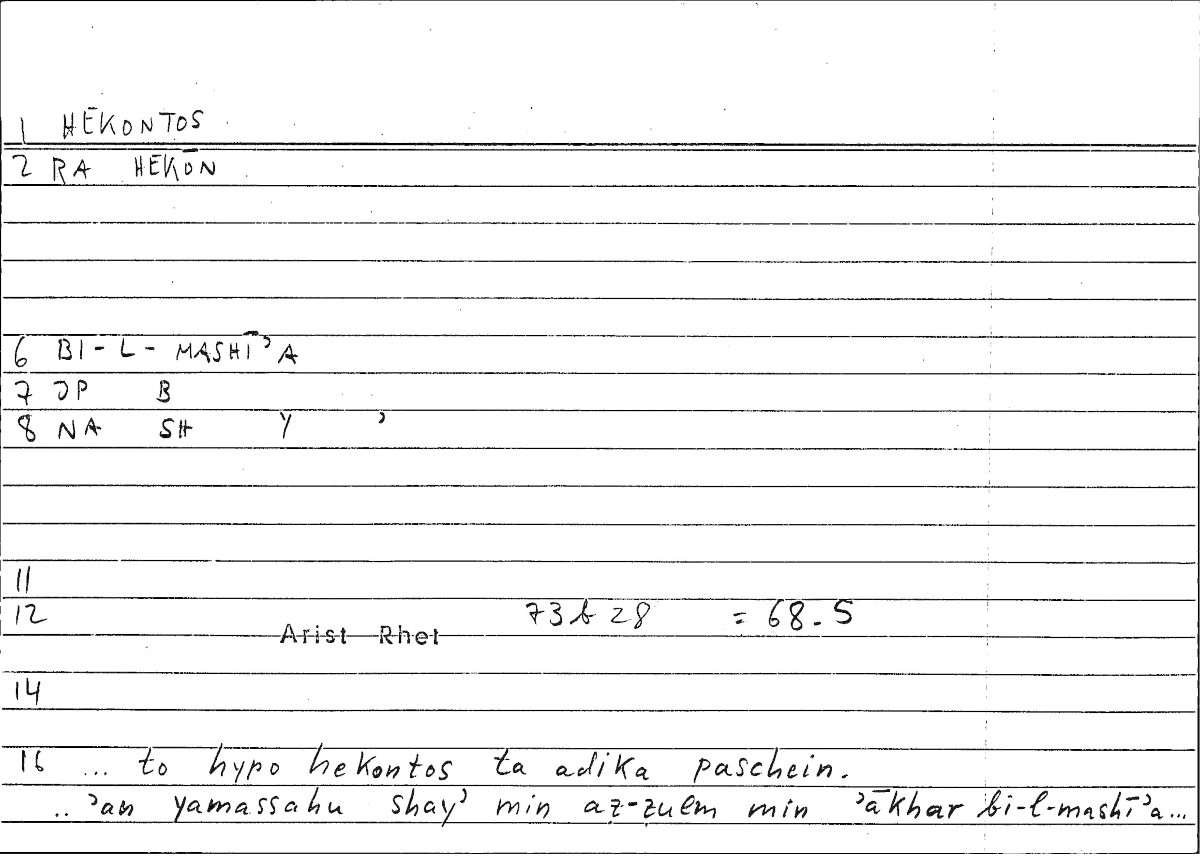 1 HĒKONTOS
2 RA HEKŌN
6 BI-L-MASHĪʾA
7 JP B
8 NA SH Y ʾ
11
12 73b28 = 68.5
Arist Rhet
14
16 ... to hypo hekontos ta adika paschein.
..ʾan yamassahu shayʾ min az-zulm min ʾākhar bi-l-mashīʾa...